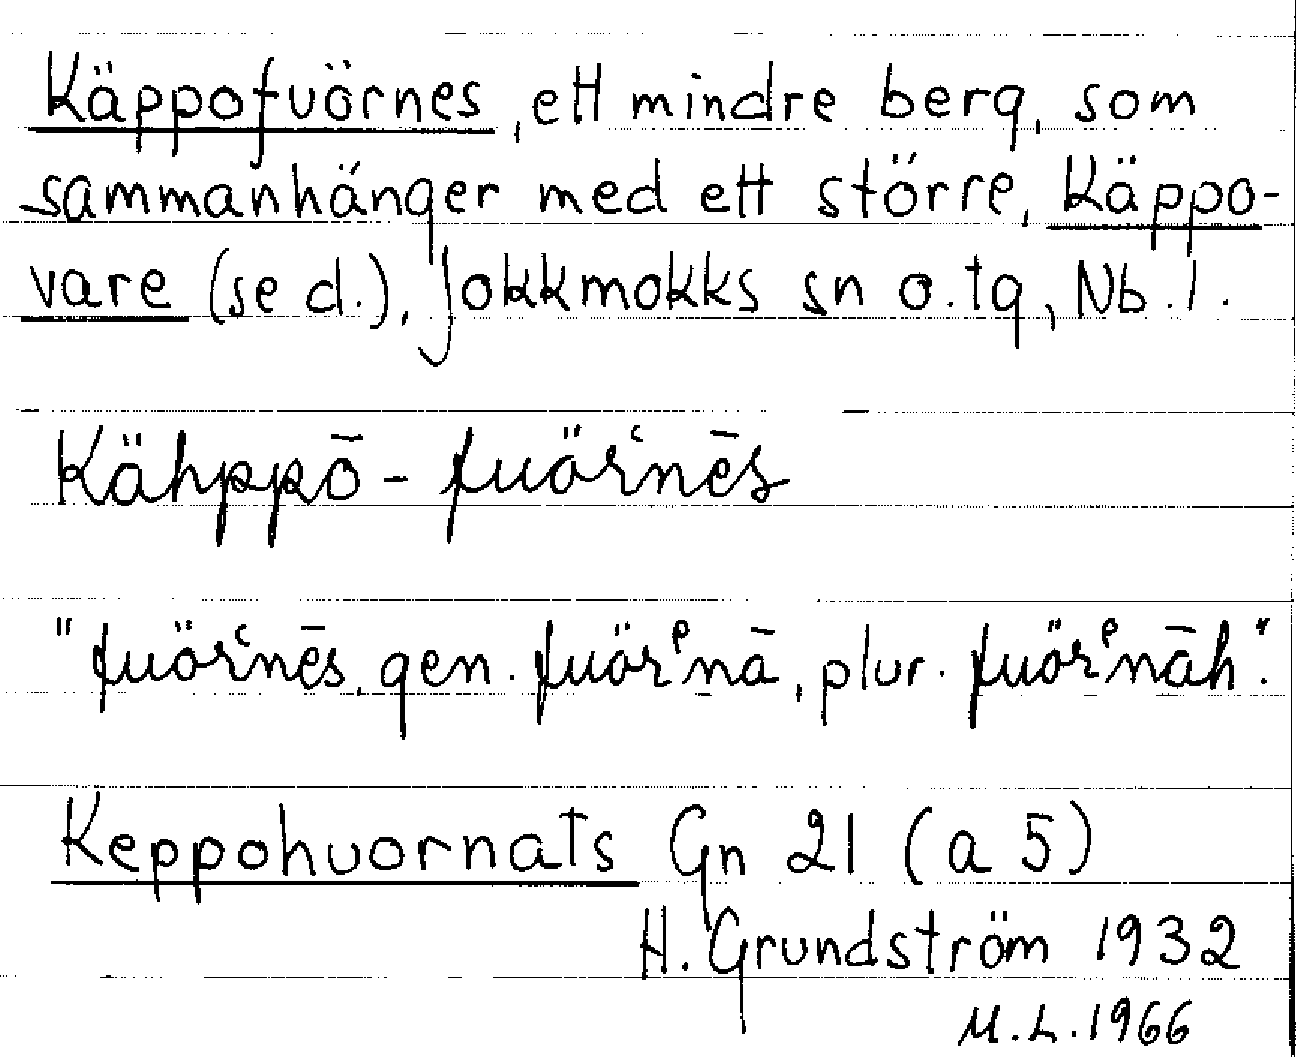 Käppofuörnes, ett mindre berg, som
sammanhänger med ett större, Käppo-
vare (se d.), Jokkmokks sn o. tg, Nb. l.
Kähppō - fuörʿnēs
"fuörʿnēs, gen. fuörᵉnā, plur. fuörᵉnāh".
Keppohuornats Gn 21 (a 5)
H. Grundström 1932
M.L. 1966